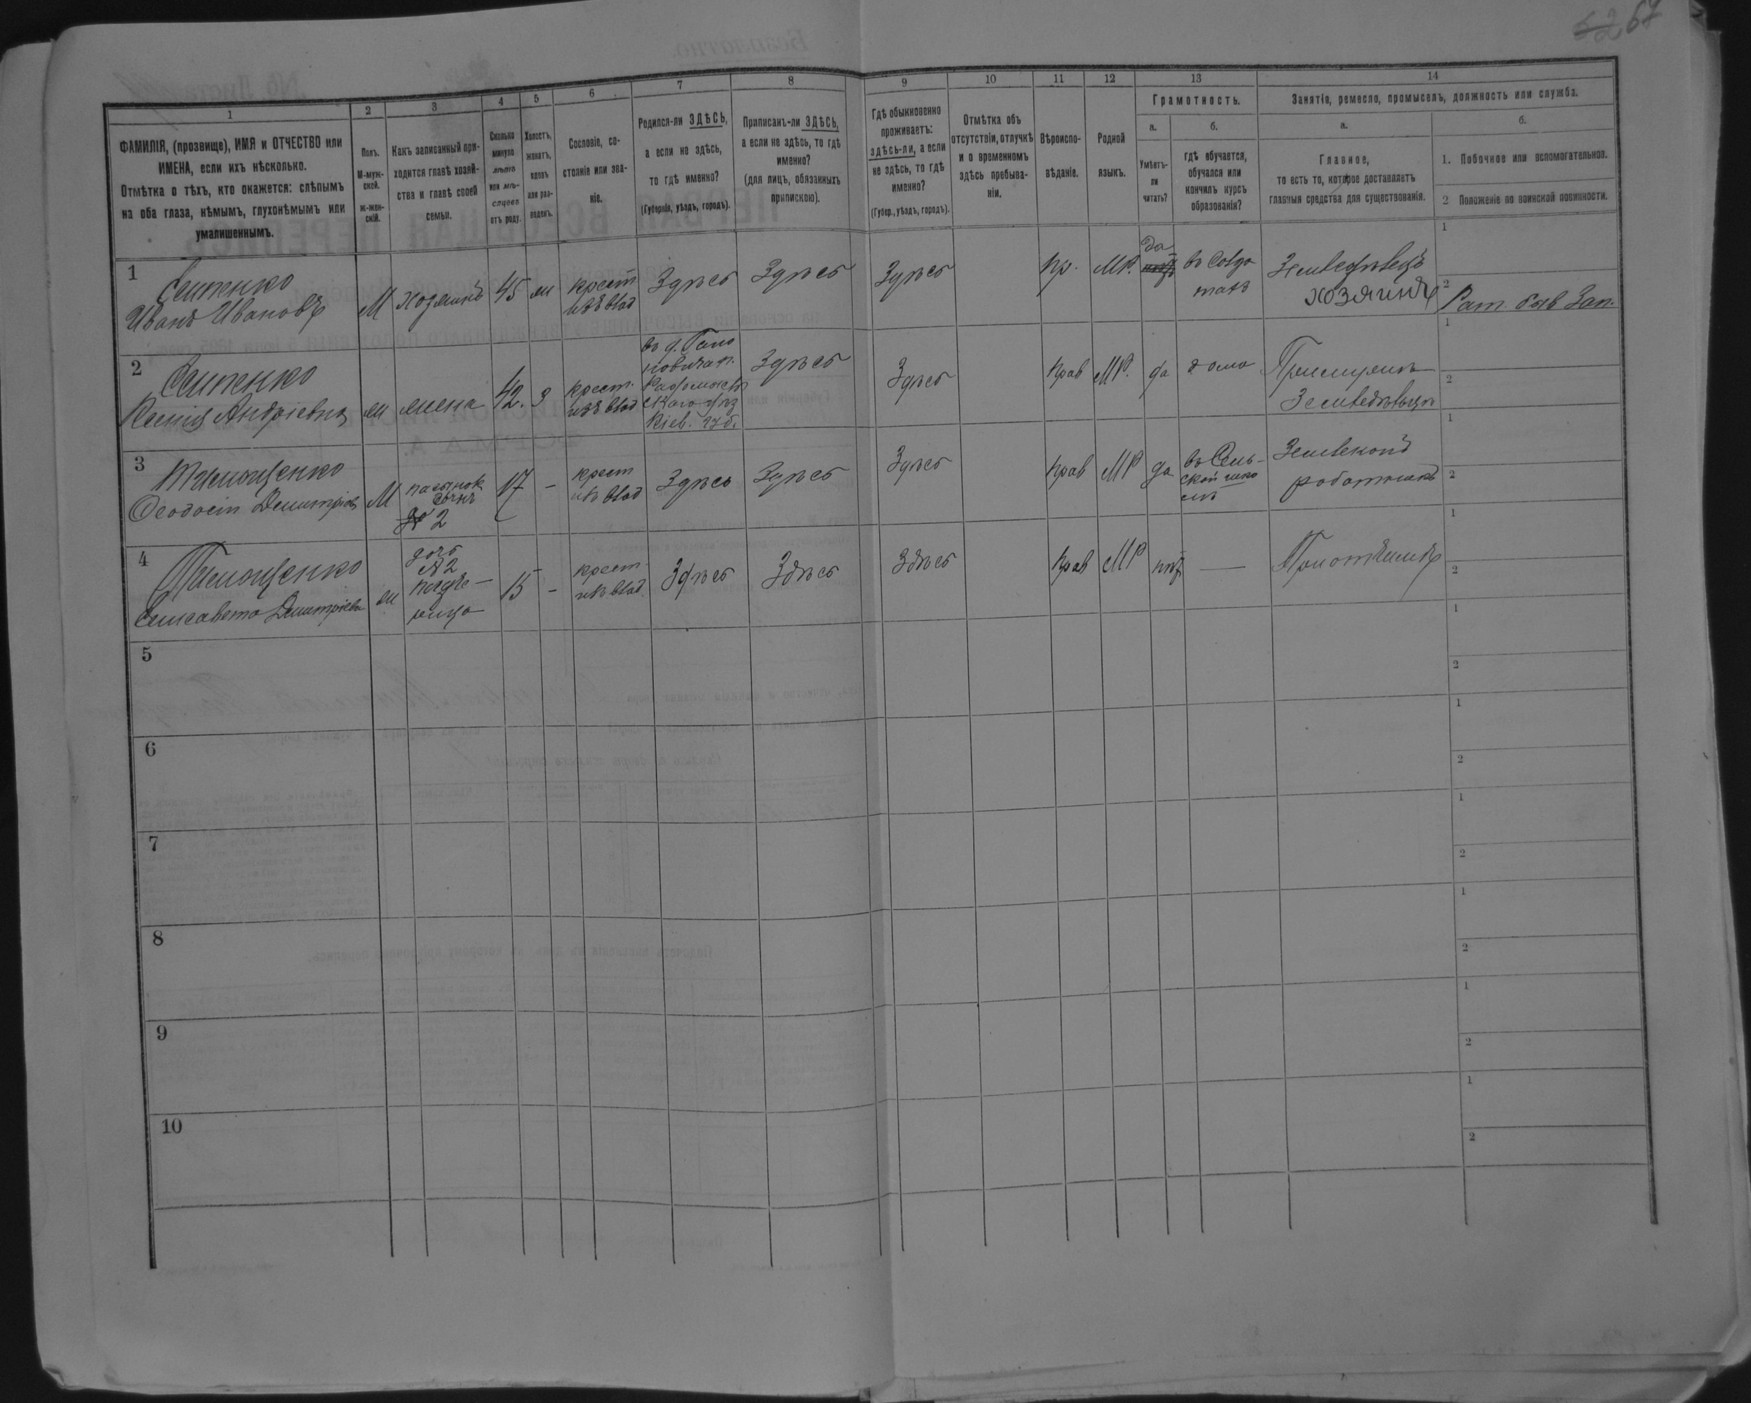 52 67
1
2
3
4
5
6
7
8
9
10
11
12
13
14
ФАМИЛІЯ, (прозвище), ИМЯ и ОТЧЕСТВО или
ИМЕНА, если ихъ нѣсколько.
Отмѣтка о тѣхъ, кто окажется: слѣпымъ
на оба глаза, нѣмымъ, глухонѣмымъ или
умалишеннымъ.
Полъ.
М-муж-
ской.
Ж-жен-
скій.
Какъ записанный при-
ходится главѣ хозяй-
ства и главѣ своей
семьи.
Сколько
минуло
лѣтъ
или мѣ-
сяцевъ
отъ роду.
Холостъ,
женатъ,
вдовъ
или раз-
веденъ.
Сословіе, со-
стояніе или зва-
ніе.
Родился-ли ЗДѢСЬ,
а если не здѣсь,
то гдѣ именно?
(Губернія, уѣздъ, городъ).
Приписанъ-ли ЗДѢСЬ,
а если не здѣсь, то гдѣ
именно?
(для лицъ, обязанныхъ
припискою).
Гдѣ обыкновенно
проживаетъ:
здѣсь-ли, а если
не здѣсь, то гдѣ
именно?
(Губер., уѣздъ, городъ).
Отмѣтка объ
отсутствіи, отлучкѣ
и о временномъ
здѣсь пребыва-
ніи.
Вѣроиспо-
вѣданіе.
Родной
языкъ.
Грамотность.
а.
Умѣетъ-
ли
читать?
б.
гдѣ обучается,
обучался или
кончилъ курсъ
образованія?
Занятіе, ремесло, промыселъ, должность или служба.
а.
Главное,
то есть то, которое доставляетъ
главныя средства для существованія.
б.
1. Побочное или вспомогательное.
2 Положеніе по воинской повинности.
1
Иванъ Ивановъ
М
хозяинъ
45
ж
крест
изъ влад
Здѣсь
Здѣсь
Здѣсь
пр.
МР.
да
нѣтъ
въ Солда
тахъ
Земледѣлецъ
хозяинъ
1
2
Рат. быв Зап.
2
Ксенія Андріевна
ж
жена
42.
З
крест.
изъ влад
Кіев. губ.
Здѣсь
Здѣсь
Прав
МР.
да
дома
1
2
3
Тимощенко
Феодосій Димитріев
М
№ 2
17
-
крест
изъ влад
Здѣсь
Здѣсь
Здѣсь
прав
МР
да
въ Сель-
ской шко
лѣ
работникъ
1
2
4
Тимощенко
Елисавета Димитріев
ж
дочь
№2
падче-
рица
15
-
крест.
изъ влад
Здѣсь
Здѣсь
Здѣсь
Прав
МР
нѣт
—
1
2
5
1
2
6
1
2
7
1
2
8
1
2
9
1
2
10
1
2